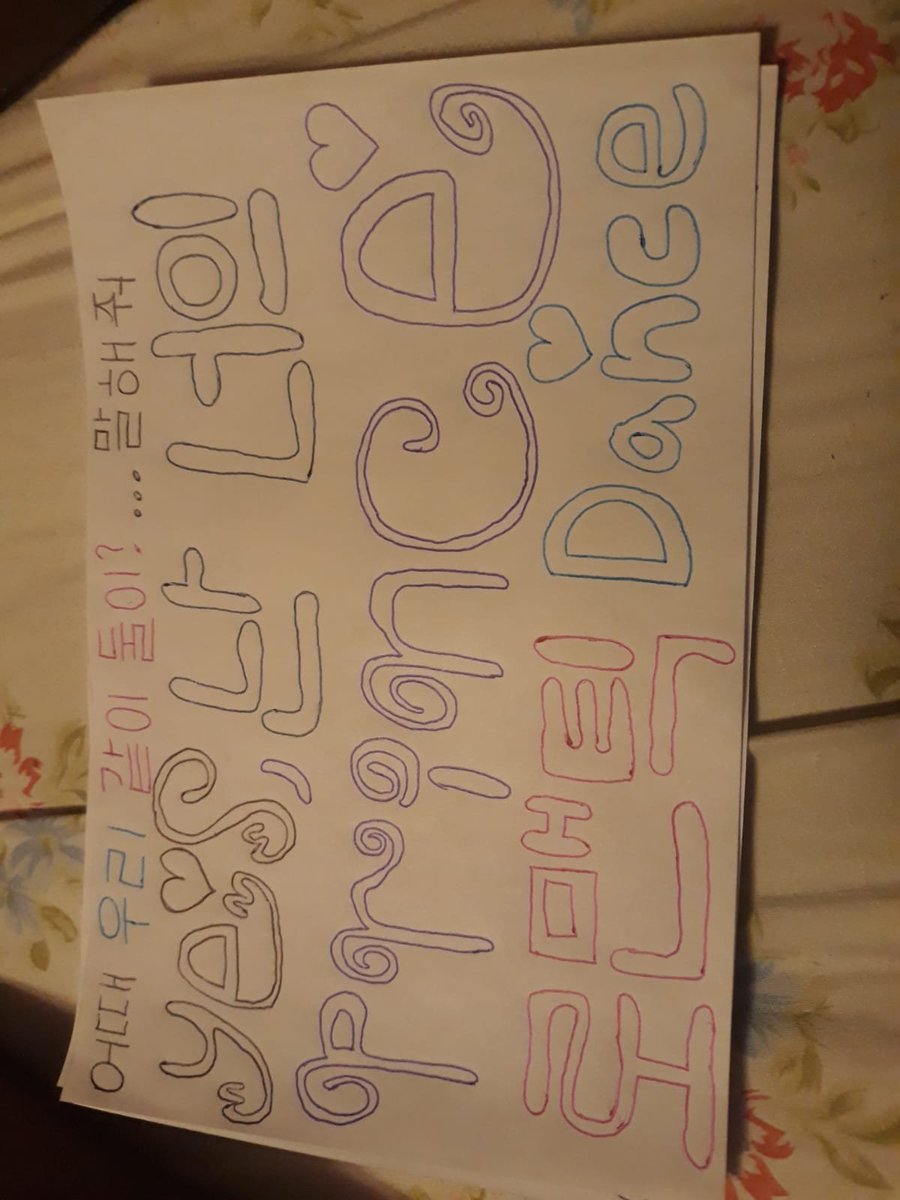 어때 우리 같이 둘이? ... 말해줘
yes, 난 너의
Prince
로맨틱 Dance